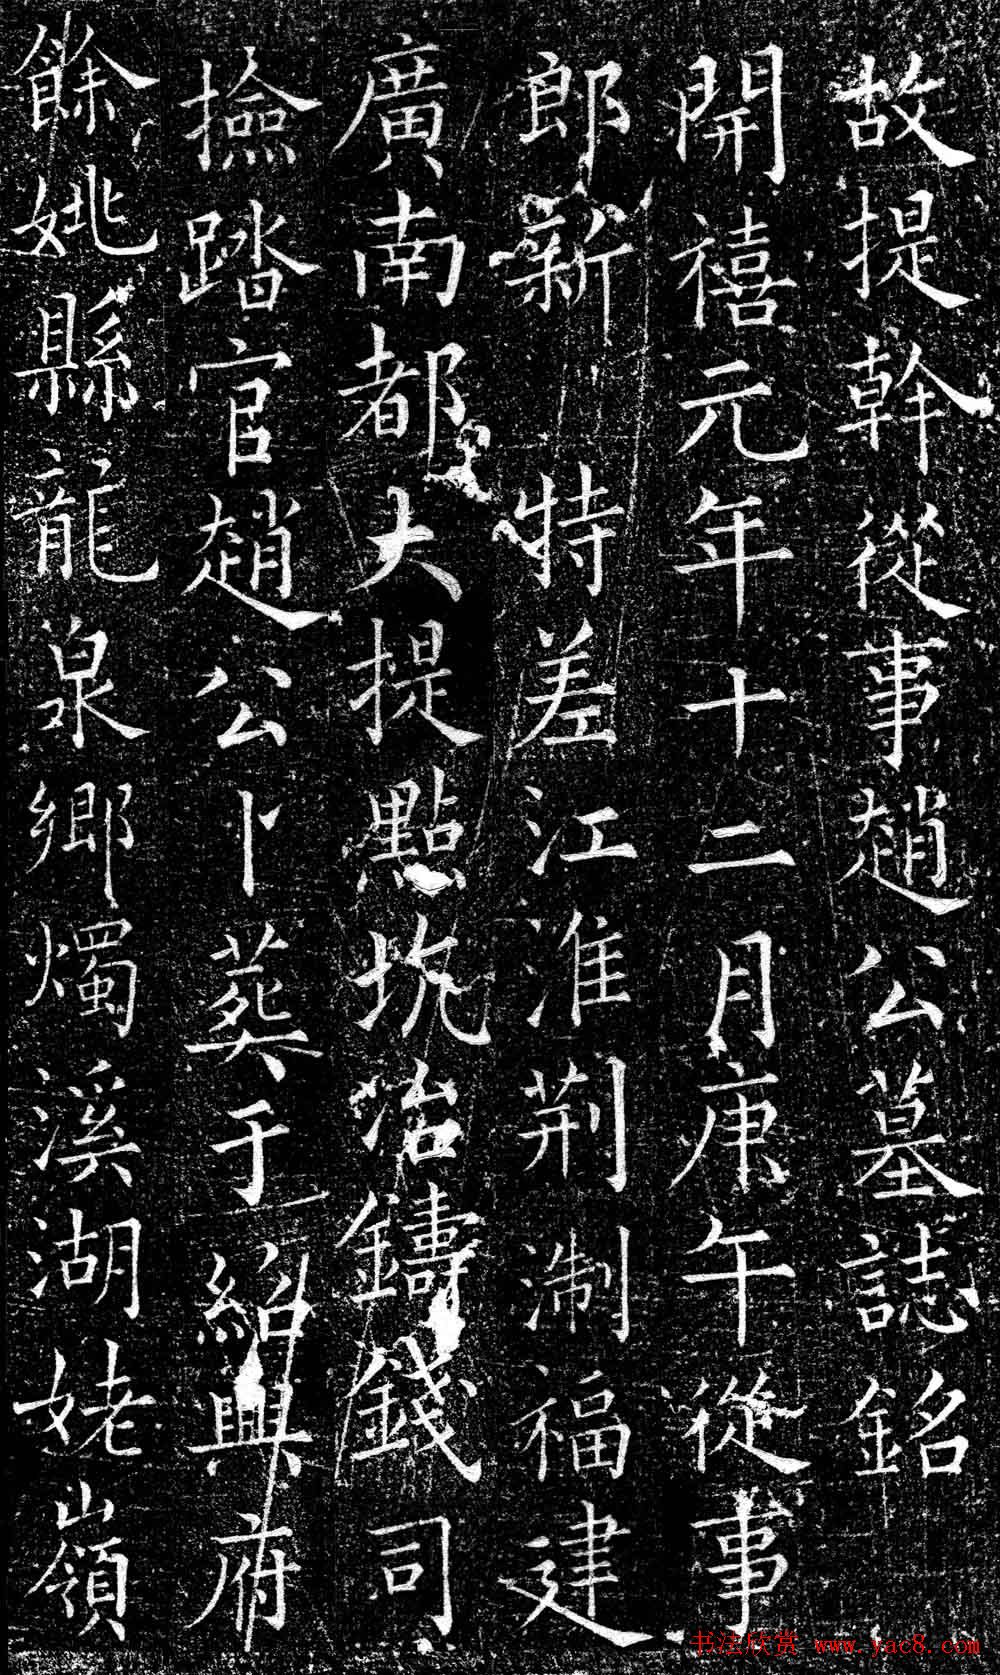 故提幹從事趙公墓誌銘
開禧元年十二月庚午從事
郎新 特差江淮荆淛福建
廣南都大提點坑冶鑄錢司
撿踏官趙公卜葬于 紹興府
餘姚縣龍泉鄉燭溪湖姥嶺
书法欣赏 www.yac8.com